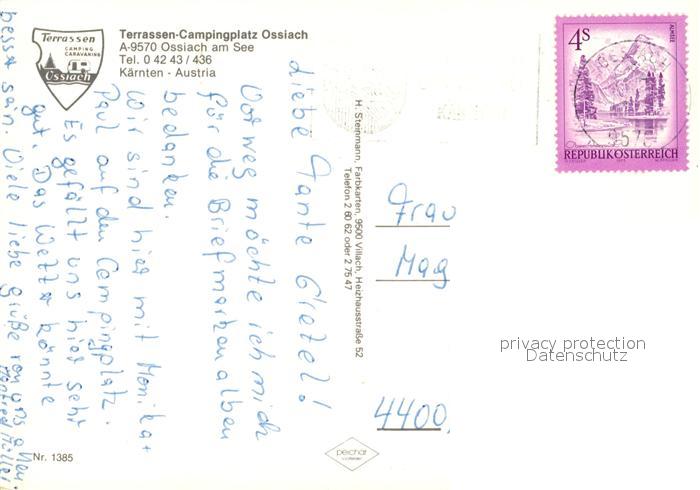 Terrassen
CAMPING
CARAVANING
Ossiach
Terrassen-Campingplatz Ossiach
A-9570 Ossiach am See
Tel. 0 42 43 / 436
Kärnten - Austria
Liebe Tante Gretel!
Vorweg möchte ich mich
für die Briefmarkenalben
bedanken.
Wir sind hier mit Monika +
Paul auf den Campingplatz.
Es gefällt uns hier sehr
gut. Das Wetter könnte
besser sein. Viele liebe Grüße von uns allen
Manfred Müller
Nr. 1385
H. Steinmann, Farbkarten, 9500 Villach, Heizhausstraße 52
Telefon 2 60 62 oder 2 75 47
peichar
4S
ALMSEE
REPUBLIK ÖSTERREICH
957
Frau
Mag
4400
privacy protection
Datenschutz